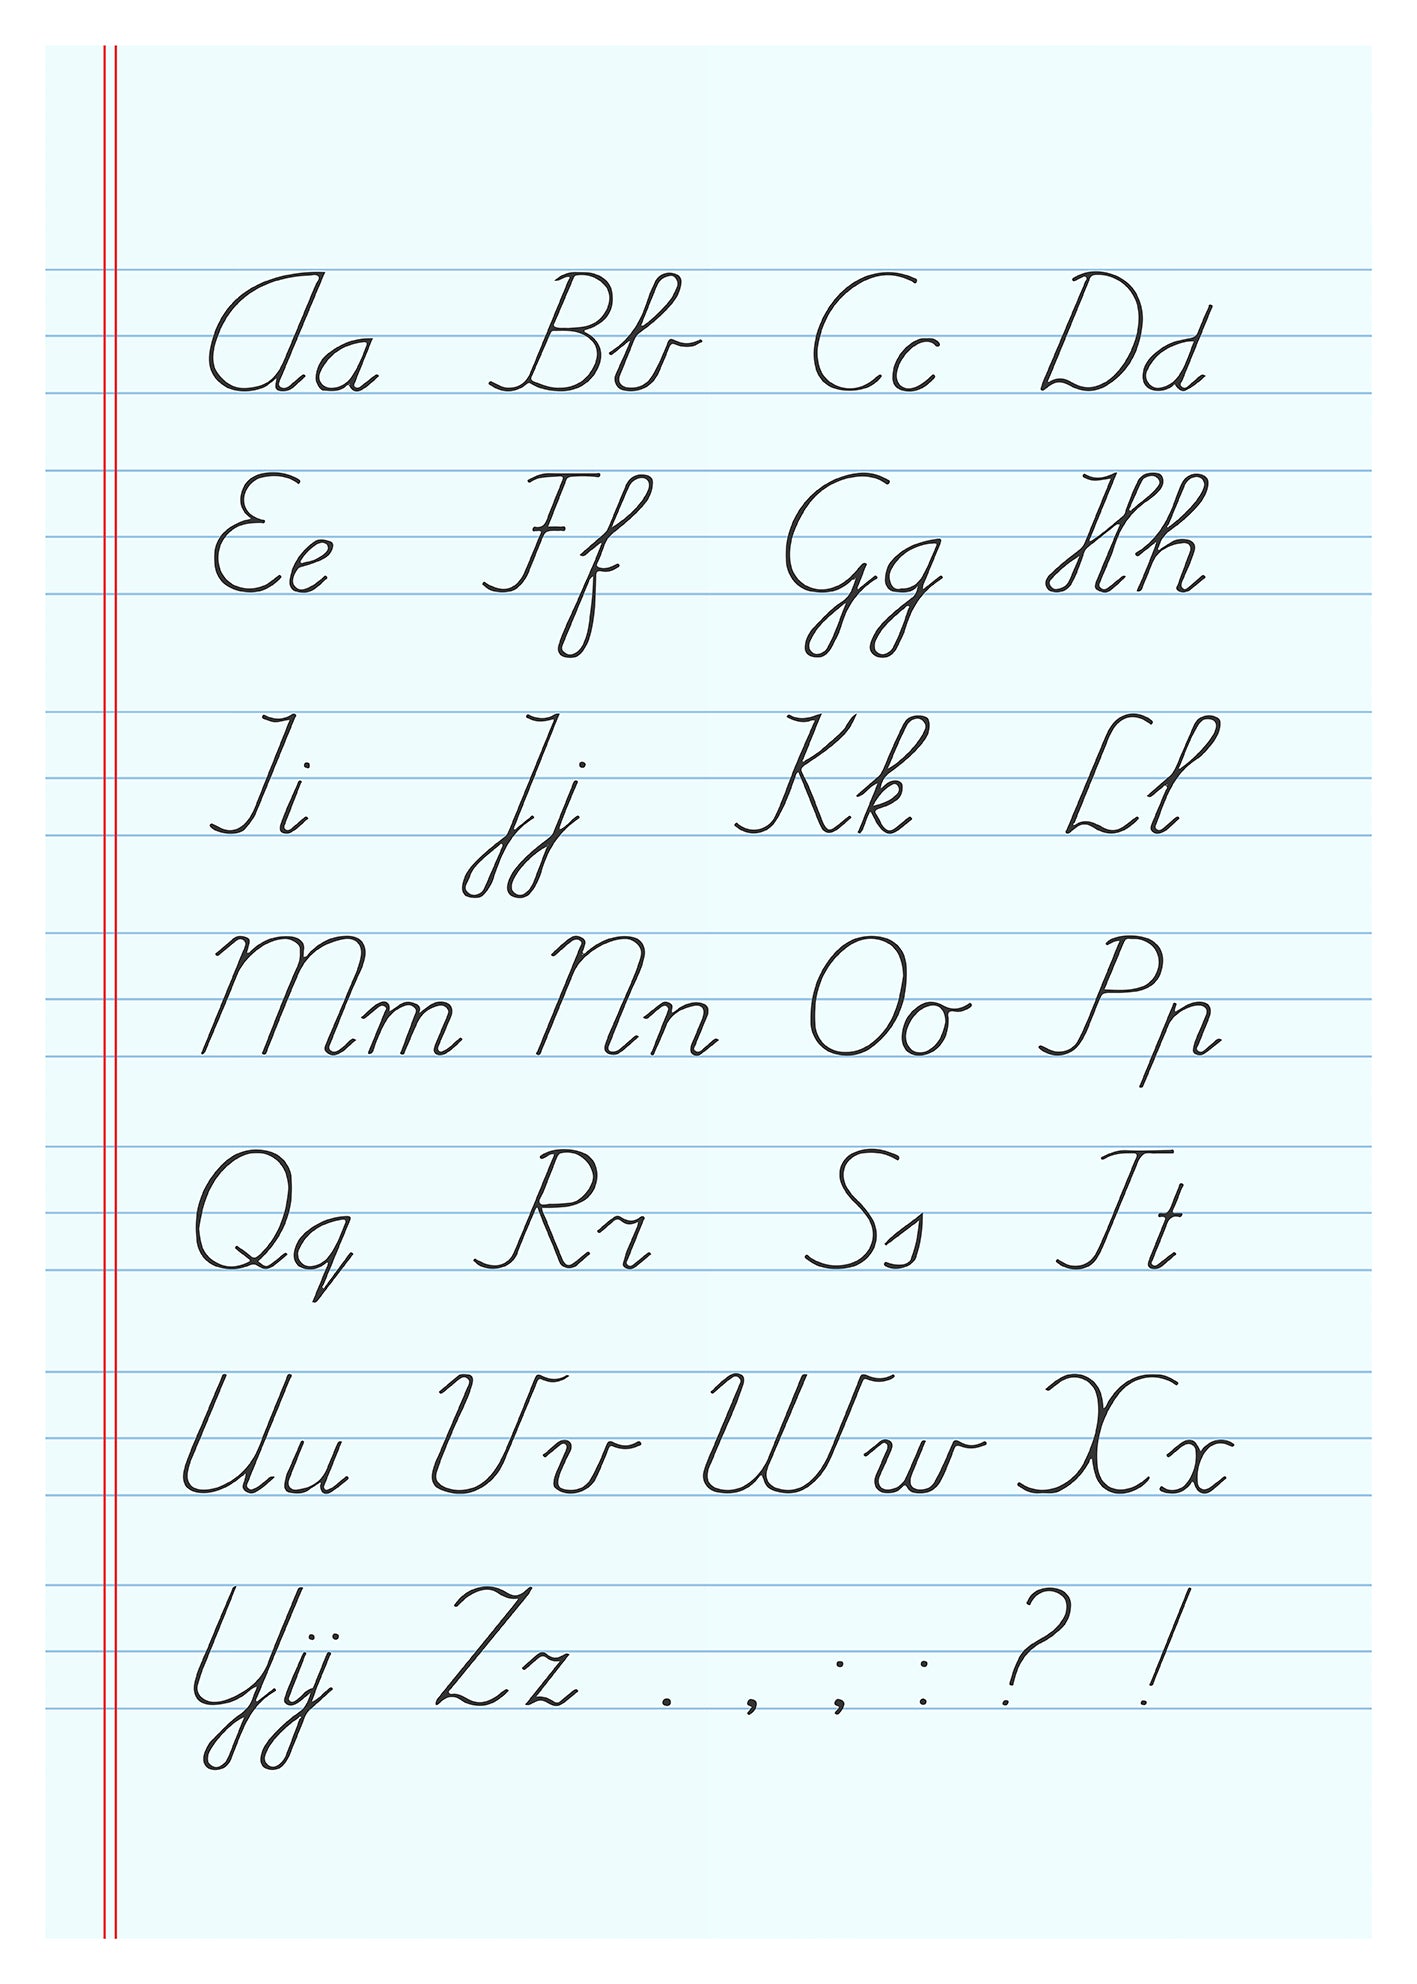 Aa Bb Cc Dd
Ee Ff Gg Hh
Ii Jj Kk Ll
Mm Nn Oo Pp
Qq Rr Ss Tt
Uu Vv Ww Xx
Yÿ Zz . , ; : ? !